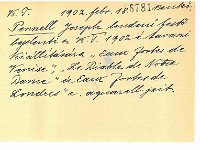 K.T. 1902. febr. 18
8781
Pennell Joseph londoni festő
bejelenti a K.T. 1902 i tavaszi
kiállítására, "Eaux fortes de
Venise", "Le Diable de Notre
Dame" és Eaux fortes de
Londres" c. aquarelljeit